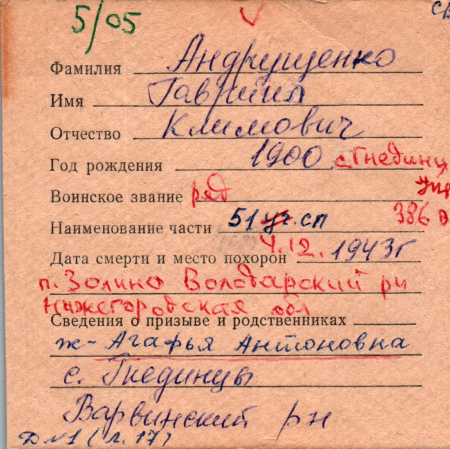 5/05
Фамилия Андрущенко
Имя Гавриил
Отчество Климович
Год рождения 1900 с. Гнединц
Воинское звание ряд
386
Наименование части 51 уч. сп
Дата смерти и место похорон 4.12. 1943г
п. Золино Володарский рн
Нижегородская обл
Сведения о призыве и родственниках
ж-Агафья Антоновна
с. Гнединцы
Варвинский рн
Д№1 (л. 17)